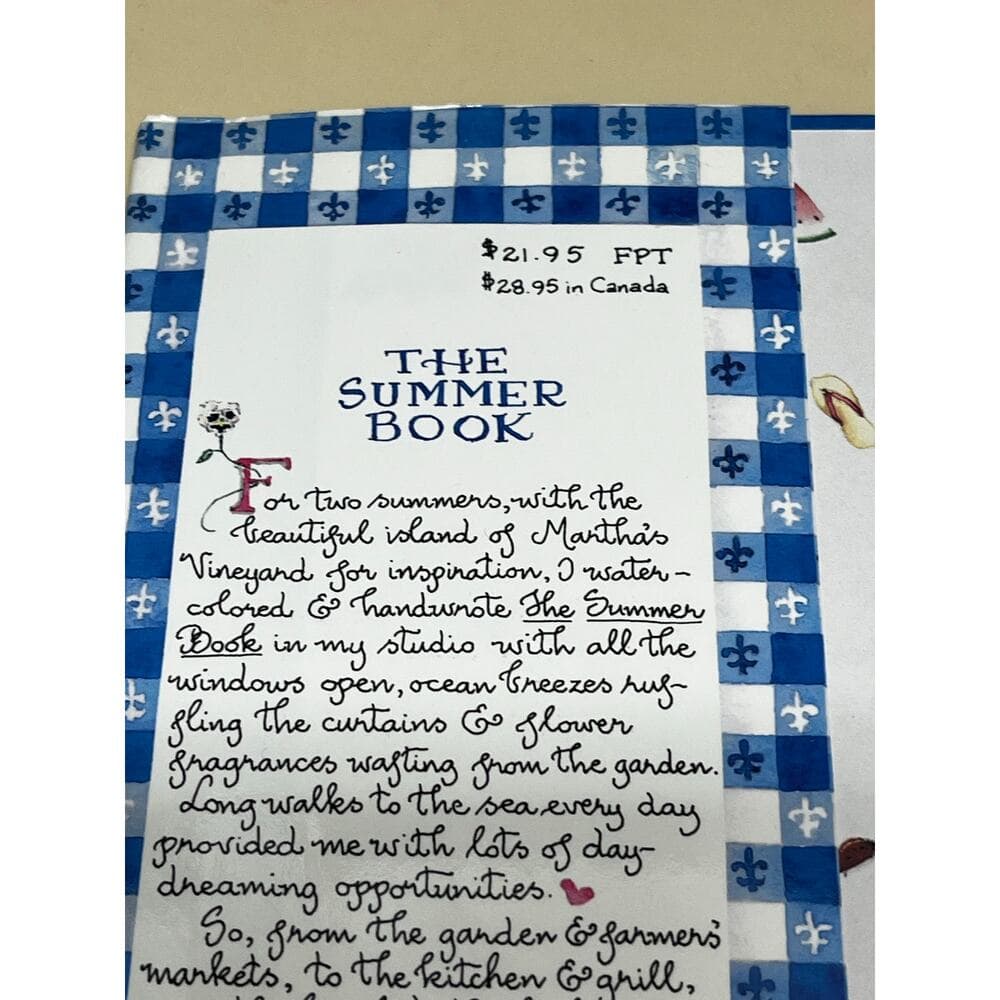 $21.95 FPT
$28.95 in Canada
THE
SUMMER
BOOK
For two summers, with the
beautiful island of Martha's
Vineyard for inspiration, I water-
colored & handwrote The Summer
Book in my studio with all the
windows open, ocean breezes ruf-
fling the curtains & flower
fragrances wafting from the garden.
Long walks to the sea every day
provided me with lots of day-
dreaming opportunities.
So, from the garden & farmers'
markets, to the kitchen & grill,